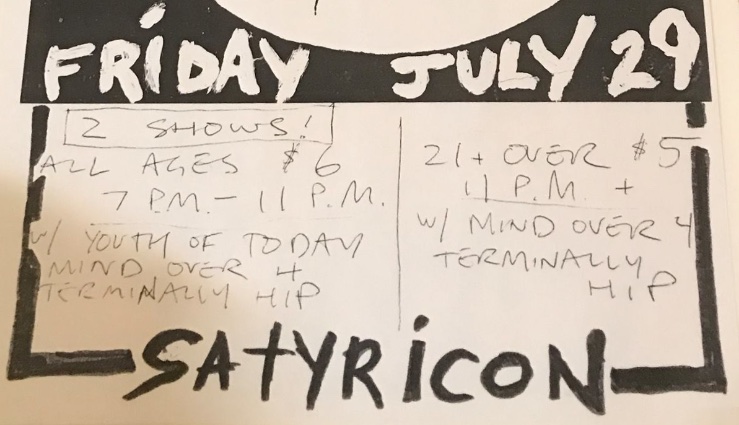 FRIDAY JULY 29
2 SHOWS!
ALL AGES $6
7 P.M. - 11 P.M.
w/ YOUTH OF TODAY
MIND OVER 4
TERMINALLY HIP
21+ OVER $5
11 P.M. +
w/ MIND OVER 4
TERMINALLY
HIP
SATYRICON